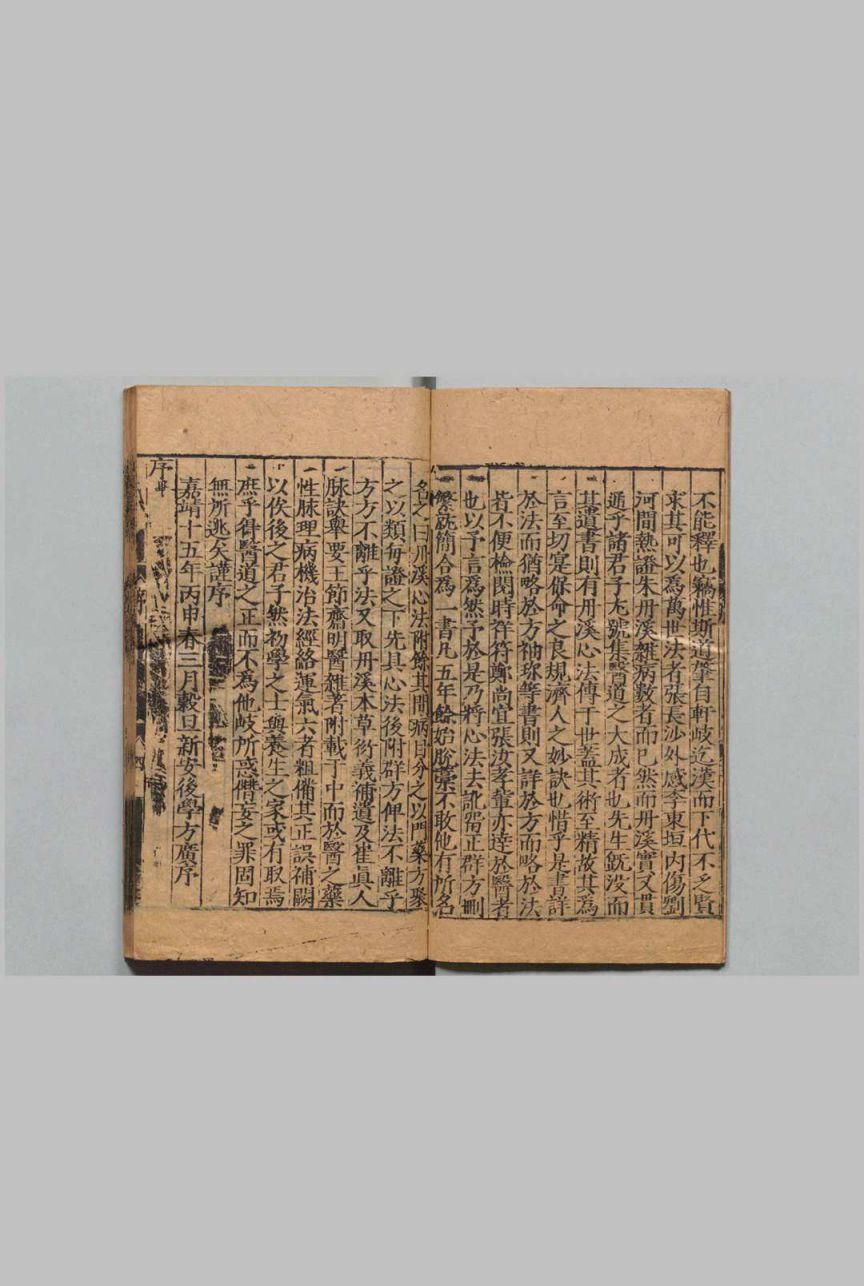 不能釋也竊惟斯道肇自軒岐迄漢而下代不乏賢
求其可以爲萬世法者張長沙外感李東垣内傷劉
河間熱證朱丹溪雜病數者而已然而丹溪實又貫
通乎諸君子尤號集醫道之大成者也先生旣没而
其遺書則有丹溪心法傳于世蓋其術至精故其爲
言至切寔保命之良規濟人之妙訣也惜乎是書詳
於法而猶略於方袖珎等書則又詳於方而略於法
皆不便檢閱時祥符鄭尚宜張汝孝輩亦逹於醫者
也以予言爲然予於是乃將心法去訛留正群方刪
繁就簡合爲一書凡五年餘始脫藁不敢他有所名
名之曰丹溪心法附餘其間病目分之以門藥方聚
之以類每證之下先具心法後附群方俾法不離乎
方方不離乎法又取丹溪本草衍義補遺及崔眞人
脉訣舉要王節齋明醫雜著附載于中而於醫之藥
性脉理病機治法經絡運氣六者粗備其正誤補闕
以俟後之君子然初學之士與養生之家或有取焉
庶乎得醫道之正而不爲他岐所惑僣妄之罪固知
無所逃矣謹序
嘉靖十五年丙申春三月穀旦新安後學方廣序
序畢